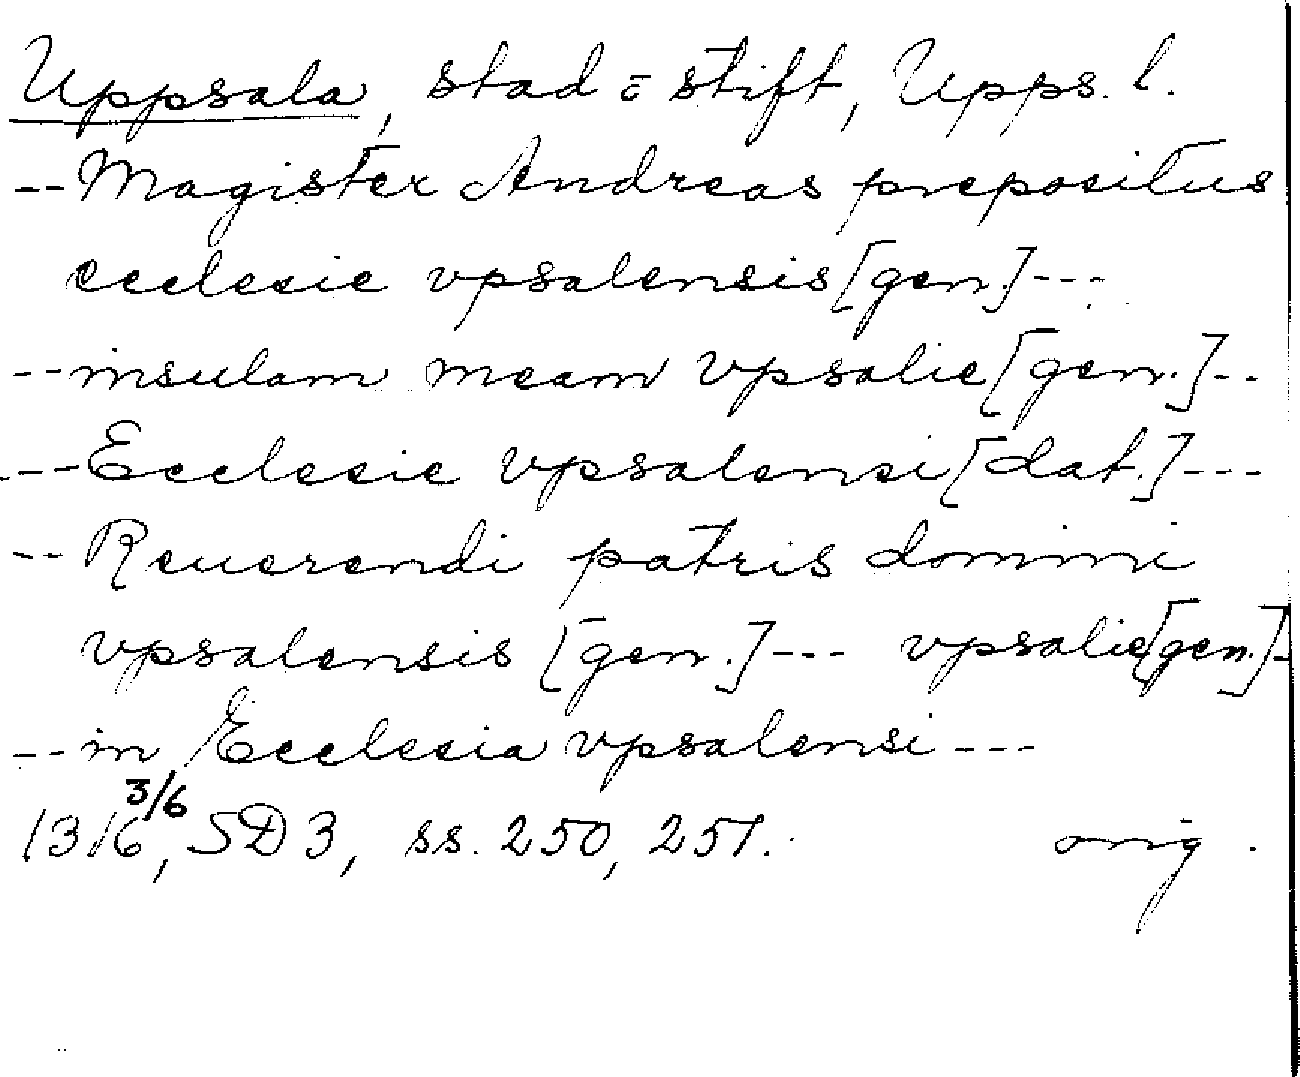 Uppsala, stad = stift, Upps. l.
-- Magister Andreas prepositus
ecclesie vpsalensis [gen.] ---
-- insulam meam vpsalie [gen.] --
--- Ecclesie vpsalensi [dat.] ---
-- Reuerendi patris domini
vpsalensis [gen.] --- vpsalie [gen.] -
-- in Ecclesia vpsalensi ---
1316 3/6, SD 3, ss. 250, 251. orig.